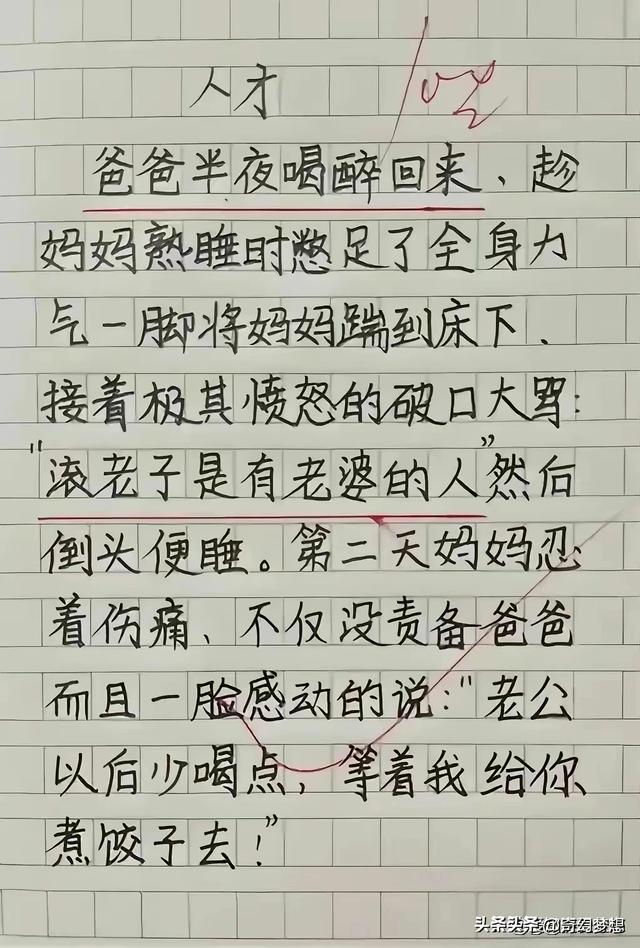 人才
爸爸半夜喝醉回来、趁
妈妈熟睡时憋足了全身力
气一脚将妈妈踹到床下、
接着极其愤怒的破口大骂:
“滚老子是有老婆的人”然后
倒头便睡。第二天妈妈忍
着伤痛、不仅没责备爸爸
而且一脸感动的说:“老公
以后少喝点，等着我给你
煮饺子去!”
头条头条@奇幻梦想